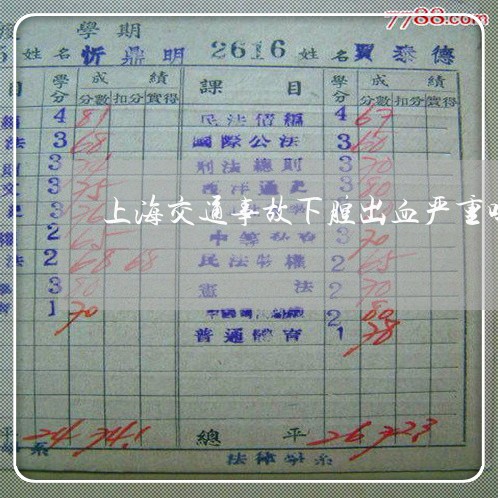 7788.com
學期
5 姓名 忻鼎明 2616 姓名 賈泰德
目 學分 成績 課目 學分 成績
分數 扣分 實得 分數 扣分 實得
4 81 民法債編 4 67
法 3 68 國際公法 3 60
3 刑法總則 3 70
3 75 西洋通史 3 80
3
上海交通事故下腔出血严重
2 65 3 70
法 2 68 68 民法物權 2 65
3 80 憲法 2 70
1 70 2 80
普通體育 1 78
平 24 74.1 總平 26 72.3
系 法律學系